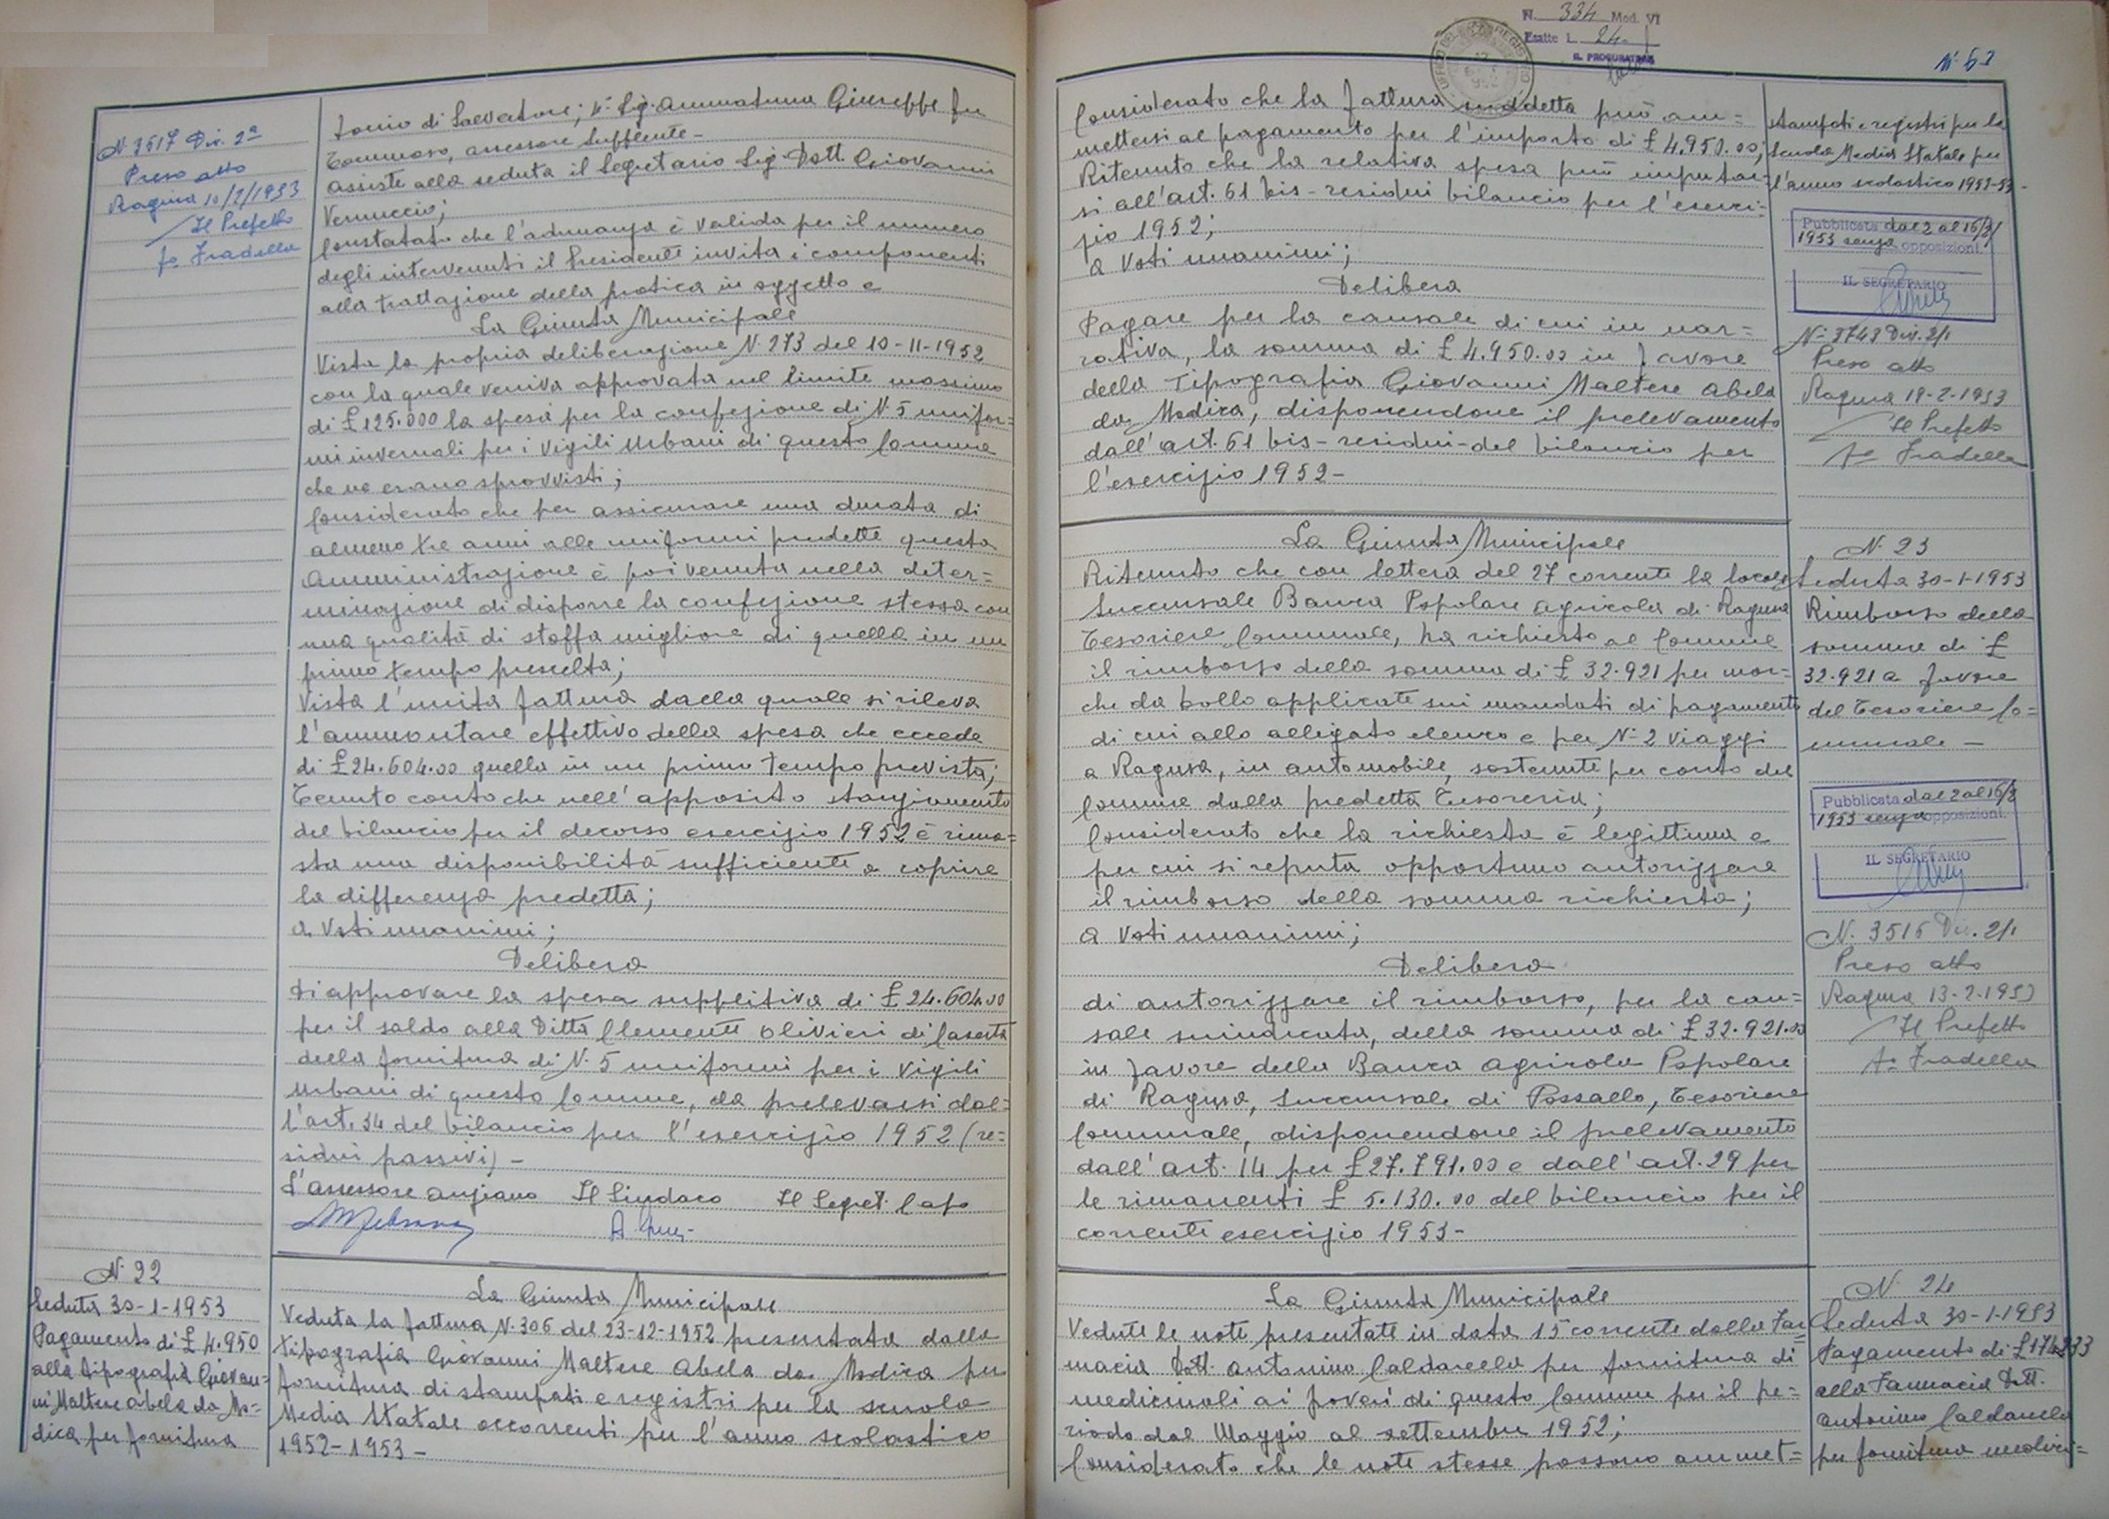 N. 3517 Div. 2ª
Preso atto
Ragusa 10/2/1953
Il Prefetto
fo Fradella
tonio di Salvatore; 4° Sig. Ammatuna Giuseppe fu
Tommaso, assessore supplente -
Assiste alla seduta il Segretario Sig. Dott. Giovanni
Vernuccio;
Constatato che l'adunanza è valida per il numero
degli intervenuti il Presidente invita i componenti
alla trattazione della pratica in oggetto e
La Giunta Municipale
Vista la propria deliberazione N. 273 del 10-11-1952
con la quale veniva approvata nel limite massimo
di £ 125.000 la spesa per la confezione di N. 5 unifor=
mi invernali per i Vigili Urbani di questo Comune
che ne erano sprovvisti;
Considerato che per assicurare una durata di
almeno tre anni alle uniformi predette questa
Amministrazione è poi venuta nella deter=
minazione di disporre la confezione stessa con
una qualità di stoffa migliore di quella in un
primo tempo prescelta;
Vista l'unita fattura dalla quale si rileva
l'ammontare effettivo della spesa che eccede
di £ 24.604.00 quella in un primo tempo prevista;
Tenuto conto che nell'apposito stanziamento
del bilancio per il decorso esercizio 1952 è rima=
sta una disponibilità sufficiente a coprire
la differenza predetta;
a voti unanimi;
Delibera
di approvare la spesa suppletiva di £ 24.604.00
per il saldo alla Ditta Clemente Olivieri di Caserta
della fornitura di N. 5 uniformi per i Vigili
Urbani di questo Comune, da prelevarsi dal=
l'art. 34 del bilancio per l'esercizio 1952 (re=
sidui passivi) -
L'assessore anziano Il Sindaco Il Segret. Capo
N 22
Seduta 30-1-1953
Pagamento di £ 4.950
alla tipografia Giovan=
ni Maltese Abela da Mo=
dica per fornitura
La Giunta Municipale
Veduta la fattura N. 306 del 23-12-1952 presentata dalla
tipografia Giovanni Maltese Abela da Modica per
fornitura di stampati e registri per la scuola
Media Statale occorrenti per l'anno scolastico
1952-1953 -
N. 334 Mod. VI
Esatte L. 24.-
IL PROCURATORE
N. 53
Considerato che la fattura suddetta può am=
mettersi al pagamento per l'importo di £ 4.950.00;
Ritenuto che la relativa spesa può imputar=
si all'art. 61 bis - residui bilancio per l'eserci=
zio 1952;
a voti unanimi;
Delibera
Pagare per la causale di cui in nar=
rativa, la somma di £ 4.950.00 in favore
della Tipografia Giovanni Maltese Abela
da Modica, disponendone il prelevamento
dall'art. 61 bis - residui - del bilancio per
l'esercizio 1952 -
stampati e registri per la
Scuola Media Statale per
l'anno scolastico 1952-53 -
Pubblicata dal 2 al 16/2/
1953 senza opposizioni.
IL SEGRETARIO
N. 3743 Div. 2/1
Preso atto
Ragusa 19-2-1953
Il Prefetto
fo Fradella
La Giunta Municipale
Ritenuto che con lettera del 27 corrente la locale
Succursale Banca Popolare Agricola di Ragusa
Tesoriere Comunale, ha richiesto al Comune
il rimborso della somma di £ 32.921 per mar=
che da bollo applicate sui mandati di pagamento
di cui allo allegato elenco e per N. 2 viaggi
a Ragusa, in automobile, sostenute per conto del
Comune dalla predetta Tesoreria;
Considerato che la richiesta è legittima e
per cui si reputa opportuno autorizzare
il rimborso della somma richiesta;
a voti unanimi;
Delibera
di autorizzare il rimborso, per la cau=
sale suindicata, della somma di £ 32.921.00
in favore della Banca Agricola Popolare
di Ragusa, Succursale di Pozzallo, Tesoriere
Comunale, disponendone il prelevamento
dall'art. 14 per £ 27.791.00 e dall'art. 29 per
le rimanenti £ 5.130.00 del bilancio per il
corrente esercizio 1953 -
N. 23
Seduta 30-1-1953
Rimborso della
somma di £
32.921 a favore
del Tesoriere Co=
munale -
Pubblicata dal 2 al 16/2
1953 senza opposizioni.
IL SEGRETARIO
N. 3516 Div. 2/1
Preso atto
Ragusa 13-2-1953
Il Prefetto
fo Fradella
La Giunta Municipale
Vedute le note presentate in data 15 corrente dalla Far=
macia Dott. Antonino Caldarella per fornitura di
medicinali ai poveri di questo Comune per il pe=
riodo dal Maggio al settembre 1952;
Considerato che le note stesse possono ammet=
N. 24
Seduta 30-1-1953
Pagamento di
alla Farmacia Dott.
Antonino Caldarella
per fornitura medici=